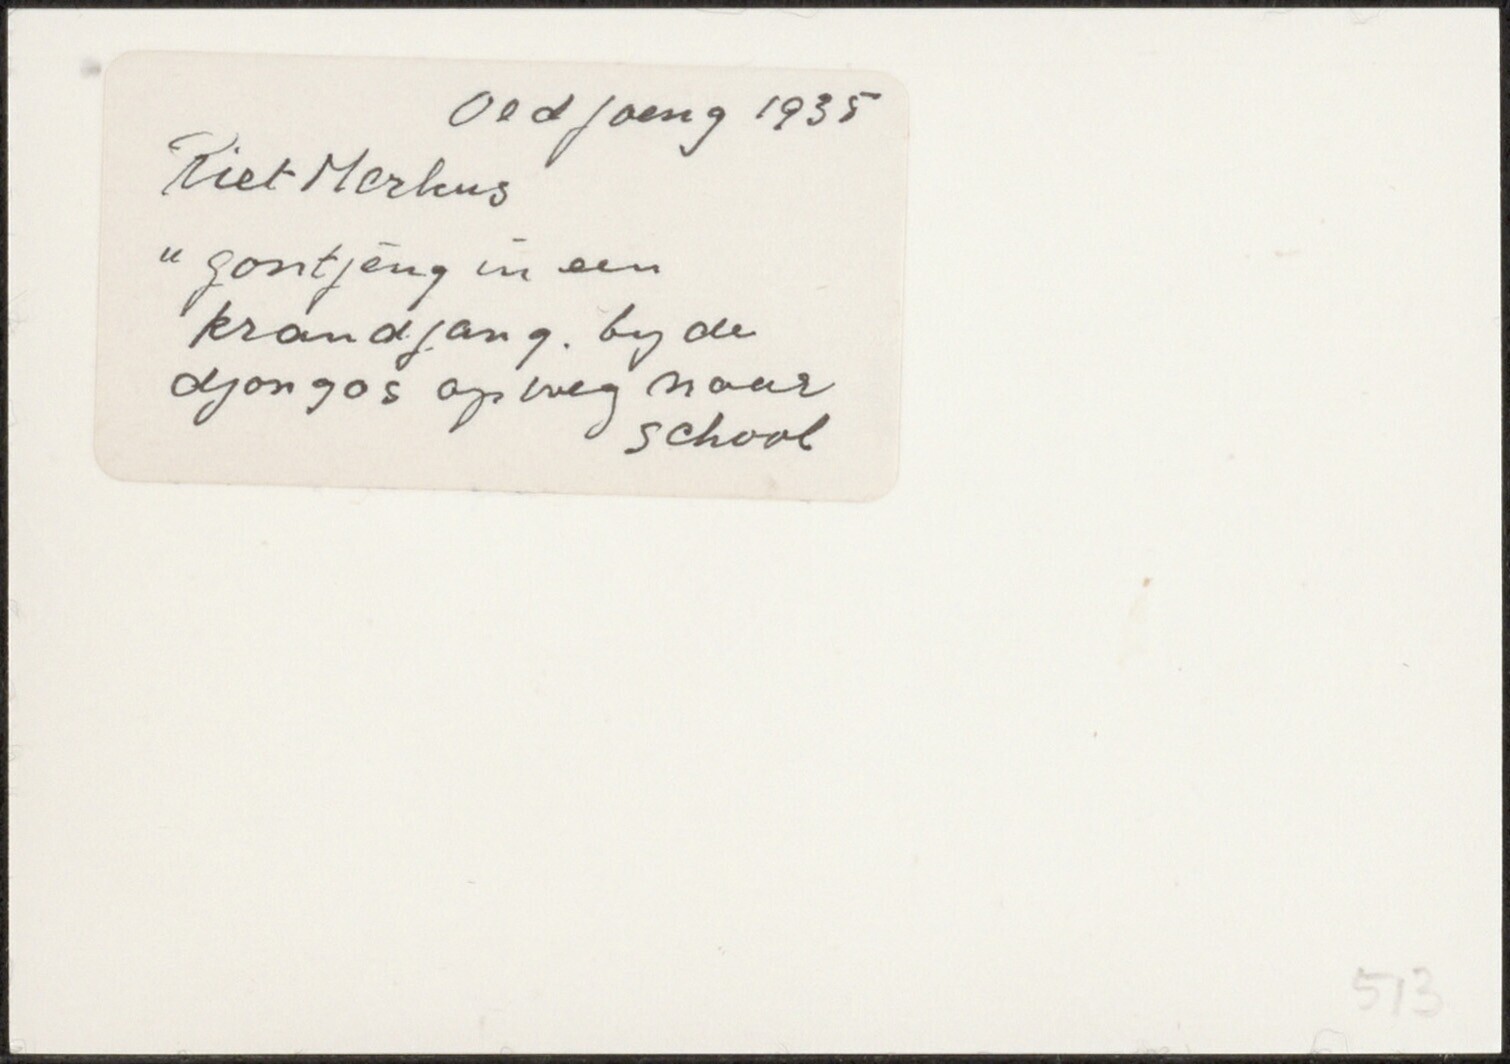 Oedjoeng 1935
Riet Merkus
" gontjèng in een
krandjang. by de
djongos op weg naar
school
513